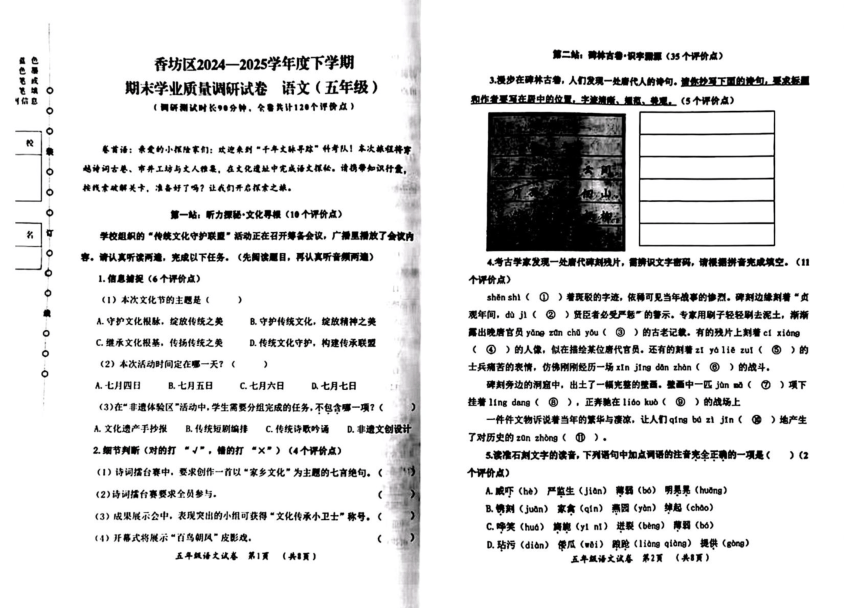 蓝色
色墨
笔成
笔填
写信息
校
名
装
订
线
香坊区2024—2025学年度下学期
期末学业质量调研试卷 语文(五年级)
(调研测试时长90分钟、全卷共计120个评价点)
卷首语:亲爱的小探险家们:欢迎来到“千年文脉寻踪”科考队!本次旅程将穿
越诗词古卷、市井工坊与文人雅集,在文化遗址中完成语文探秘。请携带知识行囊,
按线索破解关卡,准备好了吗?让我们开启探索之旅。
第一站:听力探秘·文化寻根(10个评价点)
学校组织的“传统文化守护联盟”活动正在召开筹备会议,广播里播放了会议内
容。请认真听读两遍,完成以下任务。(先阅读题目,再认真听音频两遍)
1.信息捕捉(6个评价点)
(1)本次文化节的主题是( )
A.守护文化根脉,绽放传统之美 B.守护传统文化,绽放精神之美
C.继承文化根基,传扬传统之美 D.传统文化守护,构建传承联盟
(2)本次活动时间定在哪一天?( )
A.七月四日 B.七月五日 C.七月六日 D.七月七日
(3)在“非遗体验区”活动中,学生需要分组完成的任务,不包含哪一项?( )
A.文化遗产手抄报 B.传统短剧编排 C.传统诗歌吟诵 D.非遗文创设计
2.细节判断(对的打“√”,错的打“×”)(4个评价点)
(1)诗词擂台赛中,要求创作一首以“家乡文化”为主题的七言绝句。( )
(2)诗词擂台赛要求全员参与。 ( )
(3)成果展示会中,表现突出的小组可获得“文化传承小卫士”称号。( )
(4)开幕式将展示“百鸟朝凤”皮影戏。 ( )
五年级语文试卷 第1页 (共8页)
第二站:碑林古卷·识字溯源(35个评价点)
3.漫步在碑林古巷,人们发现一处唐代人的诗句。请你抄写下面的诗句,要求标题
和作者要写在居中的位置,字迹清晰、规范、美观。(5个评价点)
4.考古学家发现一处唐代碑刻残片,需辨识文字密码,请根据拼音完成填空。(11
个评价点)
shēn shì( ① )着斑驳的字迹,依稀可见当年战事的惨烈。碑刻边缘刻着“贞
观年间,dù jì( ② )贤臣者必受严惩”的警示。专家用刷子轻轻刷去泥土,渐渐
露出晚唐官员 yǎng zūn chǔ yōu( ③ )的古老记载。有的残片上刻着 cí xiáng
( ④ )的人像,似在描绘某位唐代官员。还有的刻着 zī yá liě zuǐ( ⑤ )的
士兵痛苦的表情,仿佛刚刚经历一场 xīn jīng dǎn zhàn( ⑥ )的战斗。
碑刻旁边的洞窟中,出土了一幅完整的壁画。壁画中一匹 jùn mǎ( ⑦ )项下
挂着 líng dang( ⑧ ),正奔驰在 liáo kuò( ⑨ )的战场上
一件件文物诉说着当年的繁华与凄凉,让人们 qíng bú zì jīn( ⑩ )地产生
了对历史的 zūn zhòng( ⑪ )。
5.读准石刻文字的读音,下列语句中加点词语的注音完全正确的一项是( )(2
个评价点)
A.威吓(hè) 严监生(jiān) 薄弱(bó) 明晃晃(huǎng)
B.镌刻(juān) 家禽(qín) 燕园(yàn) 绰起(chāo)
C.哗笑(huá) 旖旎(yǐ nǐ) 迸裂(bèng) 薄弱(bó)
D.玷污(diàn) 傻瓜(wēi) 踉跄(liàng qiàng) 提供(gōng)
五年级语文试卷 第2页 (共8页)